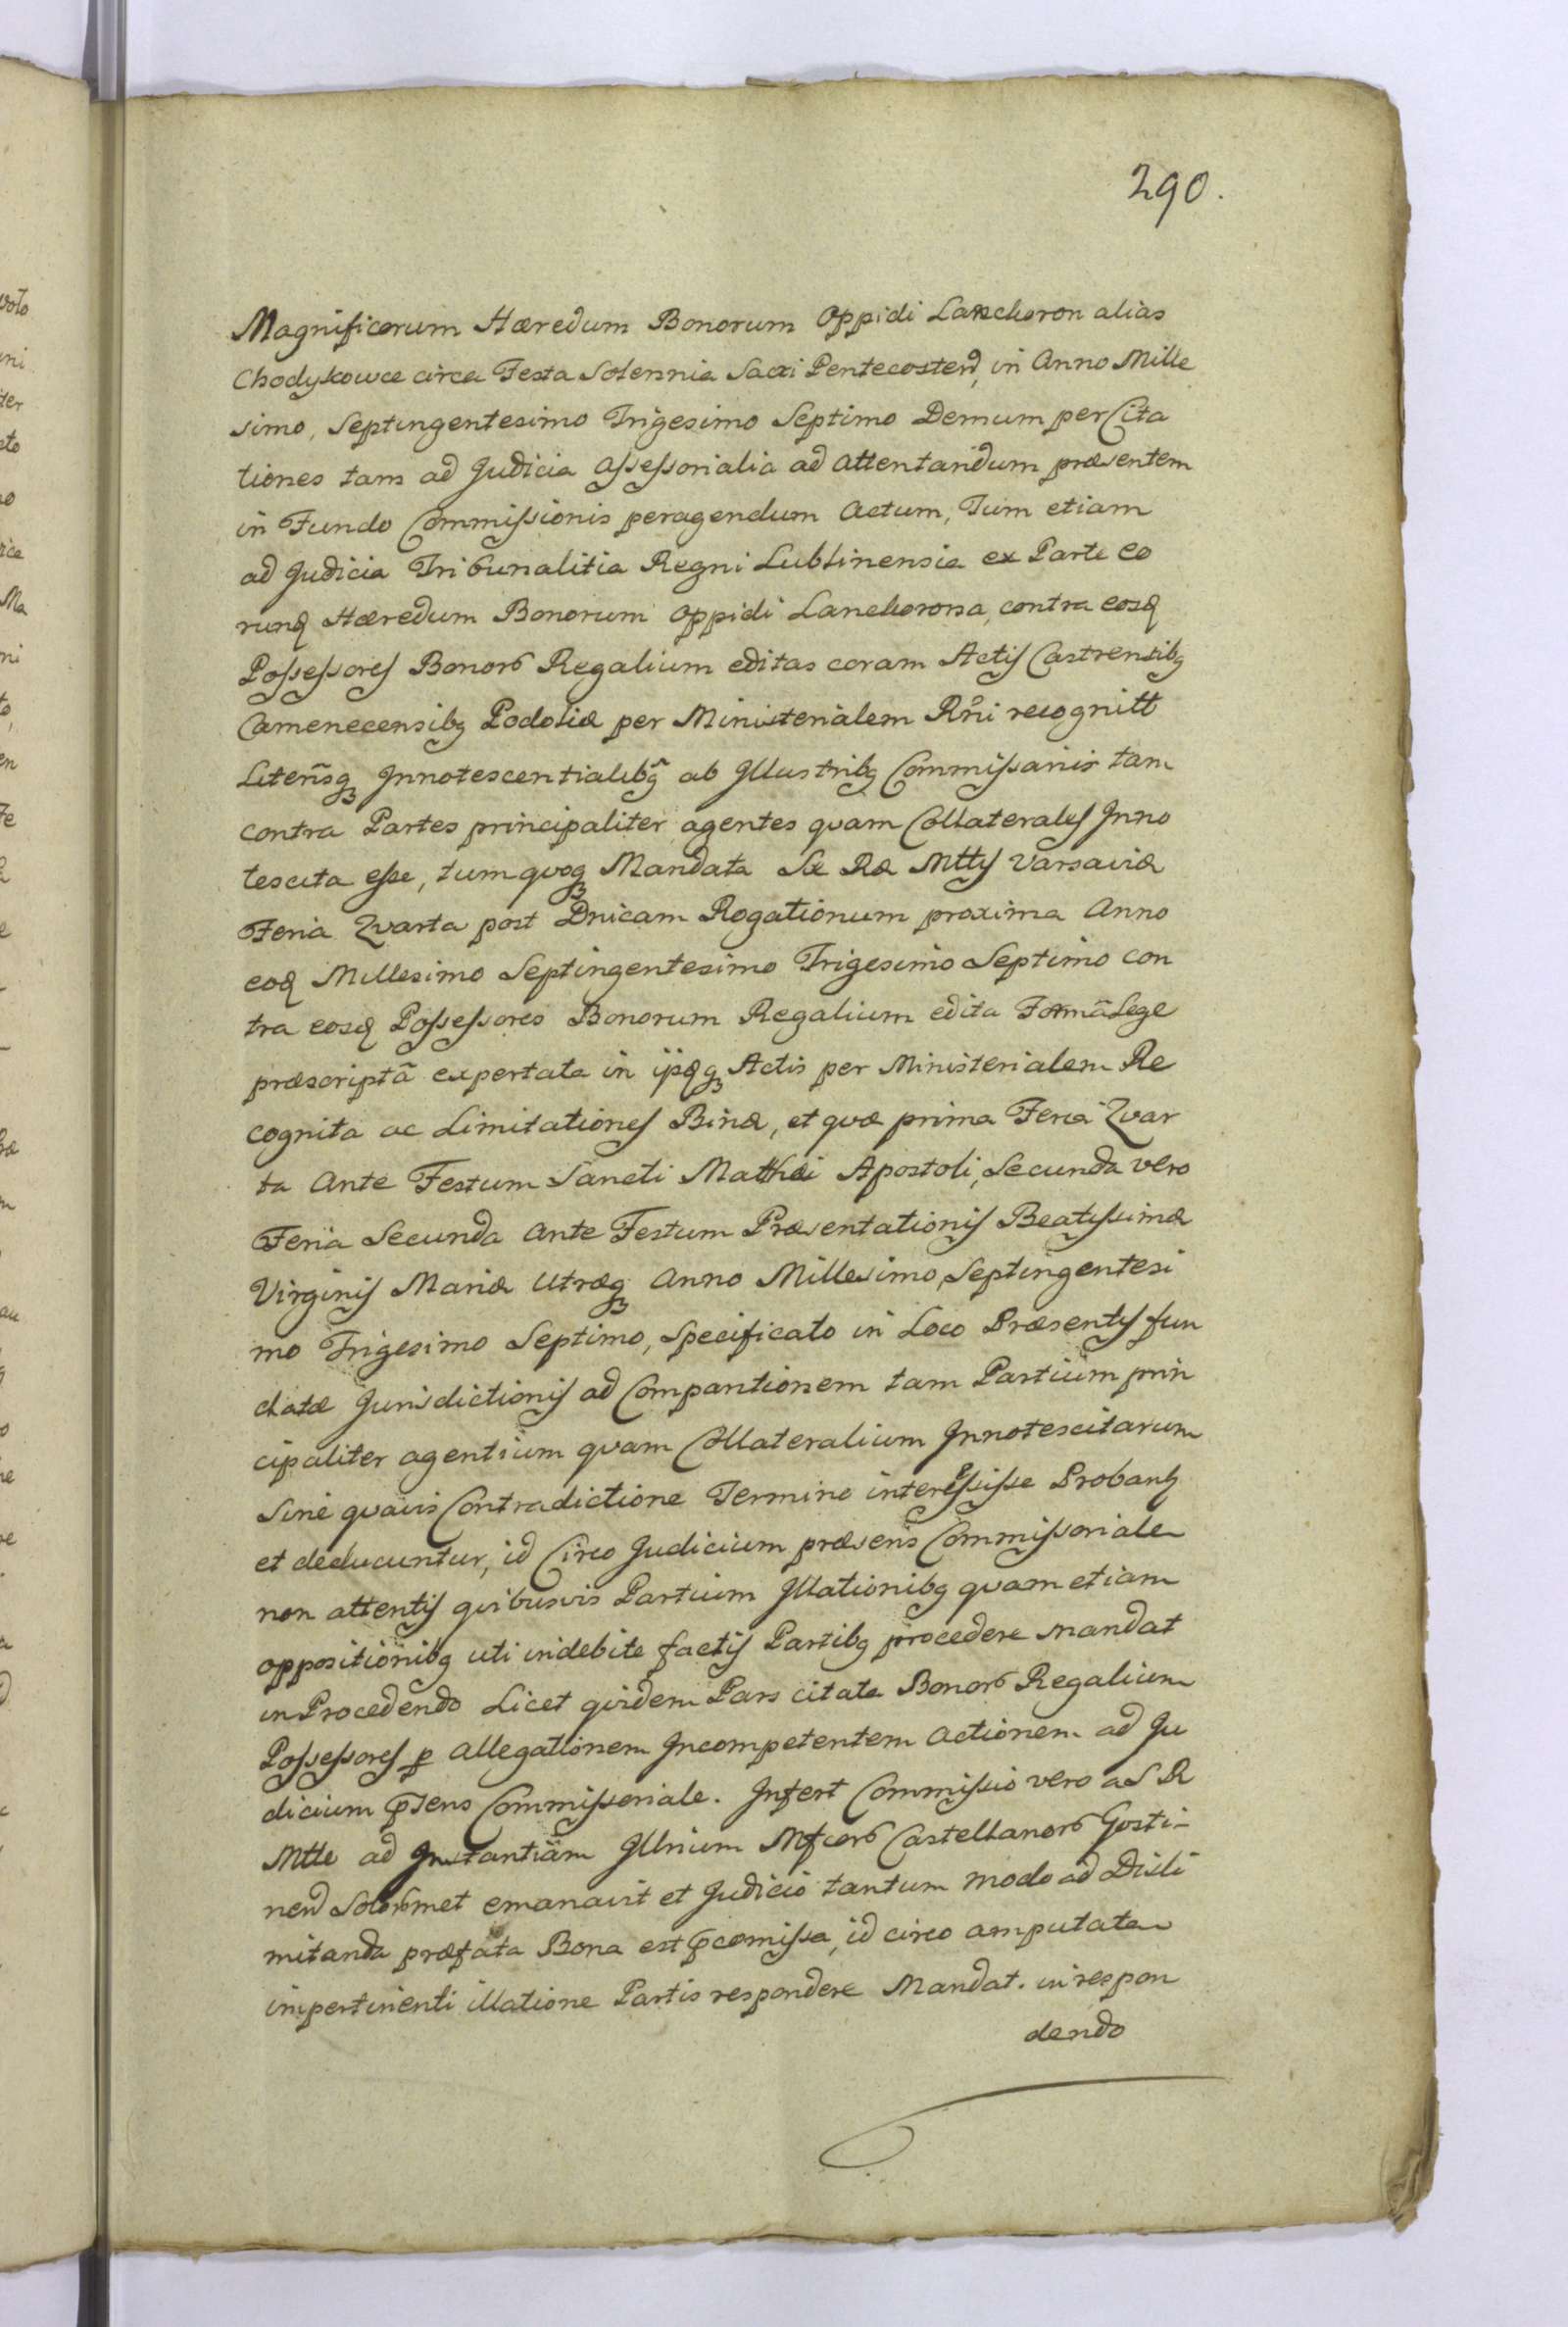 290.
Magnificorum Hæredum Bonorum Oppidi Lanckoron alias
Chodykowce circa Festa Solennia Sacri Pentecosten̄, in Anno Mille
simo, Septingentesimo Trigesimo Septimo Demum per Cita
tiones tam ad Judicia Assessorialia ad attentandum præsentem
in Fundo Commissionis peragendum Actum, Tum etiam
ad Judicia Tribunalitia Regni Lublinensia ex Parte eo
rund Hæredum Bonorum Oppidi Lanckorona, contra eosd
Possessores Bonor Regalium editas coram Actis Castrensibq
Camenecensibq Podoliæ per Ministerialem Rñi recognitt
Literisq Innotescentialibq ab Illustribq Commissariis tam
contra Partes principaliter agentes quam Collaterales Inno
tescita esse, tum quoq Mandata Sæ Ræ Mttis Varsaviæ
Feria Quarta post Dnicam Rogationum proxima Anno
eod Millesimo Septingentesimo Trigesimo Septimo con
tra eosd Possessores Bonorum Regalium edita Formã Lege
præscriptã expertata in iisdq Actis per Ministerialem Re
cognita ac Limitationes Binæ, et quæ prima Feria Quar
ta Ante Festum Sancti Mathæi Apostoli, Secunda vero
Feria Secunda Ante Festum Præsentationis Beatissimæ
Virginis Mariæ Utræq Anno Millesimo Septingentesi
mo Trigesimo Septimo, Specificato in Loco Præsentis fun
datæ Jurisdictionis ad Comparitionem tam Partium prin
cipaliter agentium quam Collateralium Innotescitarum
Sine quavis Contradictione Termino interessisse Probant
et deducuntur, id Circo Judicium præsens Commissoriale
non attentis quibusvis Partium Illationibq quam etiam
oppositionibq uti indebite factis Partibq procedere mandat
in Procedendo Licet quidem Pars citata Bonor Regalium
Possessores p Allegationem Incompetentem Actionem ad Ju
dicium p̄sens Commissoriale. Infert Commissio vero a S R
Mtte ad Instantiam Illrium Mfcor Castellanor Gosti-
nen̄ Solormet emanavit et Judicio tantum modo ad Disli
mitanda præfata Bona est p̄comissa, id circo amputata
impertinenti illatione Partis respondere Mandat. in respon
dendo